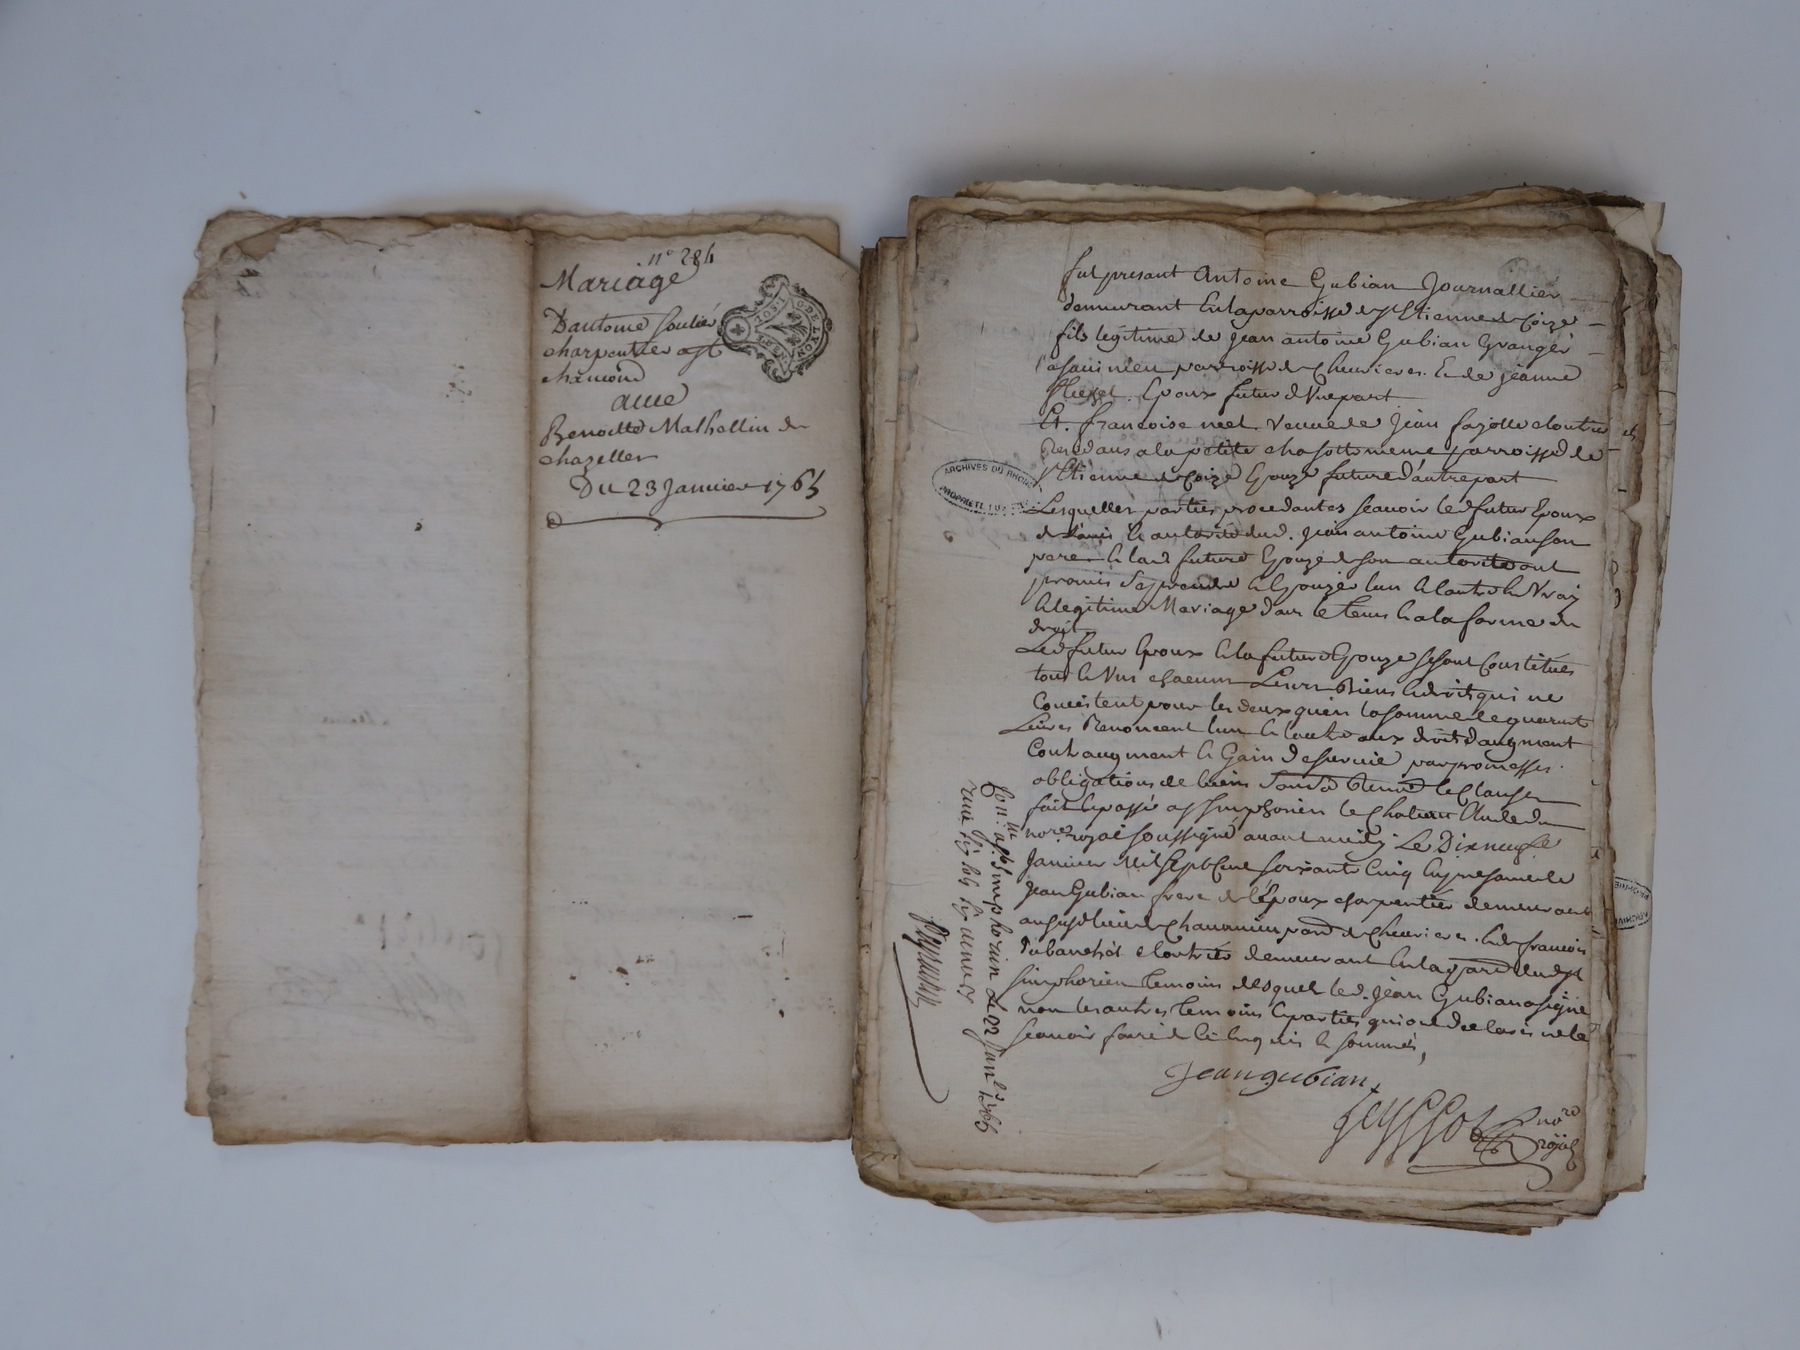 n° 284
Mariage
D'antoine Soulier
charpentier a St
chamond
avec
Benoitte Mathellin de
chazelles
Du 23 Janvier 1765
fut presant Antoine Gubian Journallier
demeurant En la parroisse de St Etienne de Coize
fils legitime de Jean antoine Gubian Granger
parroisse de Chevrieres. Et de jeanne
Epoux futur d'Une part
Et. francoise neel Veuve de Jean fayolle
a la petite chasotte meme parroisse de
St Etienne de Coize Epouze future d'autre part
Lesquelles parties procedantes sçavoir led futur Epoux
de l'avis & autorité dud. Jean antoine Gubian son
pere & lad future Epouze de son autorité ont
promis Se prendre & Epouzer lun & lautre En Vray
& legitime Mariage dans le tems & a la forme du
droit
Led futur Epoux & la future Epouze se sont Constitués
tous & Uns chacuns Leurs Biens & droits qui ne
Concistent pour les deux qu'en la somme de quarante
Livres Renoncent lun & lautre aux droits d'augment
Contraugment & Gain de survie par promesses
obligations de biens & Clauses
fait & passé a St Simphorien le Chateau Etude du
nore royal soussigné avant midy Le Dixneufe
Janvier Mil Sept Cent soixante Cinq En presance de
Jean Gubian frere de l'Epoux charpentier demeurant
au susd lieu de parr de Chevrieres. & de francois
demeurant En la parr dud St
Simphorien temoins desquels led. Jean Gubian a signé
non les autres temoins & parties qui ont declaré ne le
sçavoir faire de ce Enquis & sommés,
Jean gubian
nore
royal
Con. a St Simphorien Le 22 Janv.
ARCHIVES DU RHONE
PROPRIETE PUBLIQUE